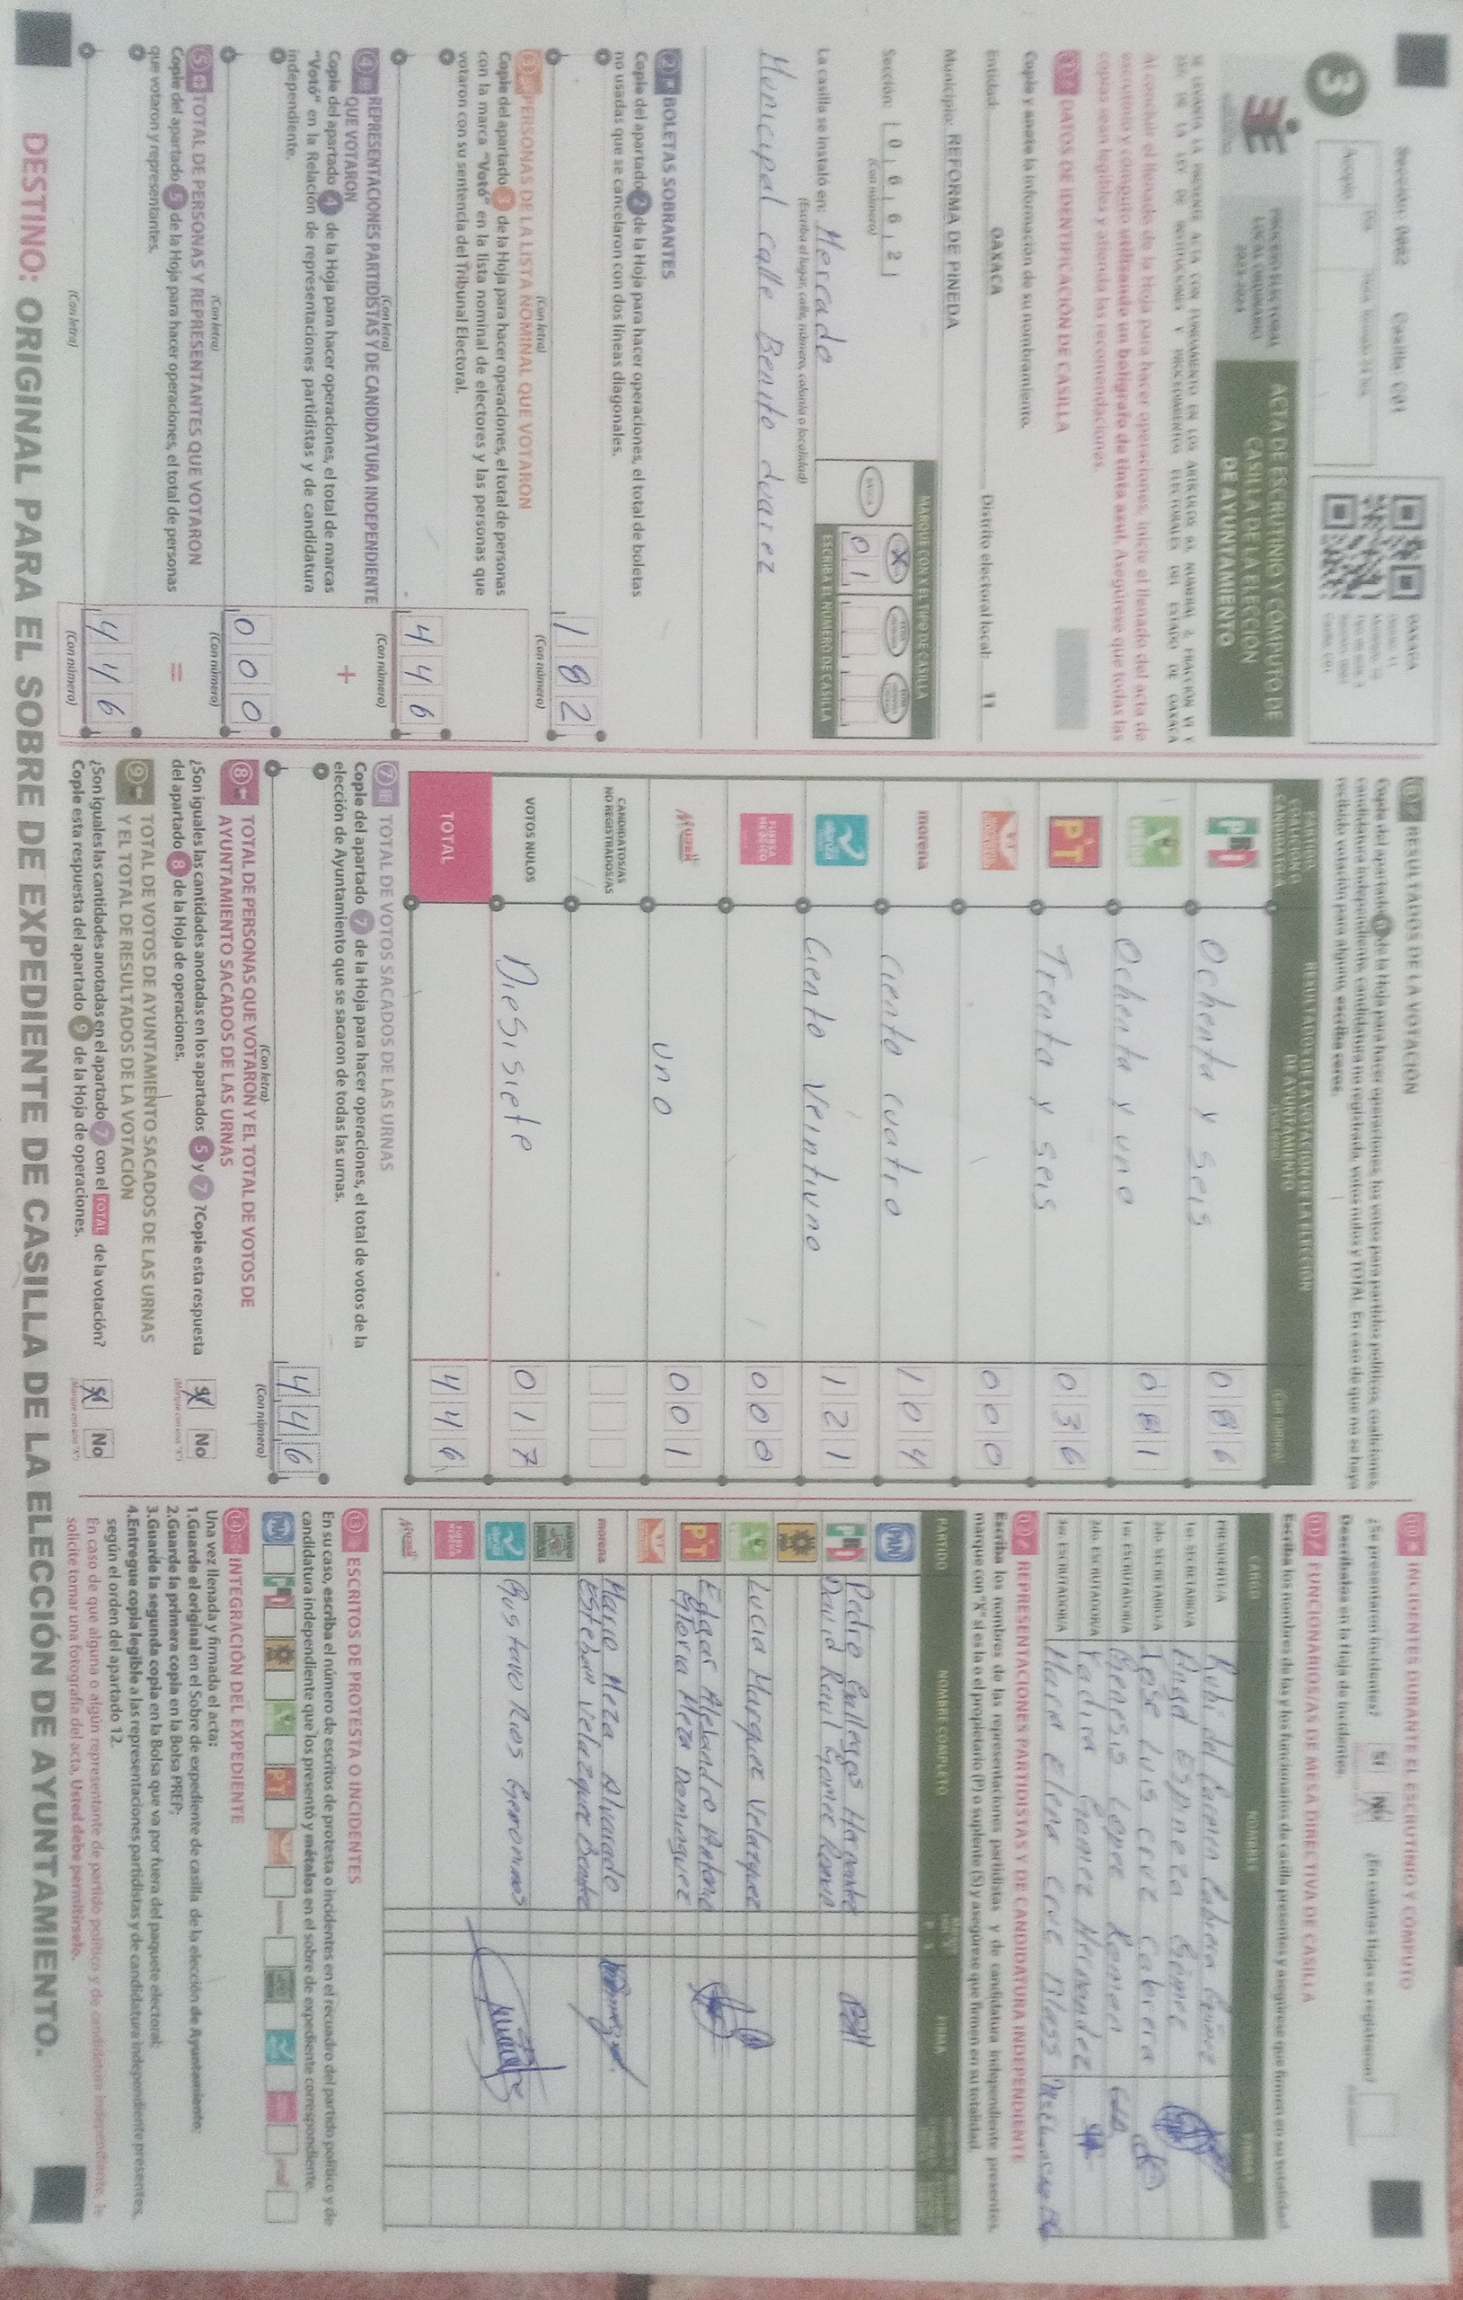 Sección: 0662 Casilla: C01
3
PROCESO ELECTORAL
LOCAL ORDINARIO
2023-2024
ACTA DE ESCRUTINIO Y CÓMPUTO DE
CASILLA DE LA ELECCIÓN
DE AYUNTAMIENTO
OAXACA
SE LEVANTA LA PRESENTE ACTA CON FUNDAMENTO EN LOS ARTÍCULOS
DE LA LEY DE INSTITUCIONES Y PROCEDIMIENTOS ELECTORALES DEL ESTADO DE OAXACA
Al concluir el llenado de la Hoja para hacer operaciones, inicie el llenado del acta de
escrutinio y cómputo utilizando un bolígrafo de tinta azul. Asegúrese que todas las
copias sean legibles y atienda las recomendaciones.
1 DATOS DE IDENTIFICACIÓN DE CASILLA
Copie y anote la información de su nombramiento.
Entidad: OAXACA Distrito electoral local: 11
Municipio: REFORMA DE PINEDA
Sección: 0 6 6 2
(Con número)
MARQUE CON X EL TIPO DE CASILLA
BÁSICA X
0 1
ESCRIBA EL NÚMERO DE CASILLA
La casilla se instaló en: Mercado
(Escriba el lugar, calle, número, colonia o localidad)
Municipal calle Benito Juarez
2 BOLETAS SOBRANTES
Copie del apartado 2 de la Hoja para hacer operaciones, el total de boletas
no usadas que se cancelaron con dos líneas diagonales.
1 8 2
(Con letra) (Con número)
3 PERSONAS DE LA LISTA NOMINAL QUE VOTARON
Copie del apartado 3 de la Hoja para hacer operaciones, el total de personas
con la marca "Votó" en la lista nominal de electores y las personas que
votaron con su sentencia del Tribunal Electoral.
4 4 6
(Con letra) (Con número)
4 REPRESENTACIONES PARTIDISTAS Y DE CANDIDATURA INDEPENDIENTE
QUE VOTARON
Copie del apartado 4 de la Hoja para hacer operaciones, el total de marcas
"Votó" en la Relación de representaciones partidistas y de candidatura
independiente.
+
0 0 0
(Con letra) (Con número)
5 TOTAL DE PERSONAS Y REPRESENTANTES QUE VOTARON
Copie del apartado 5 de la Hoja para hacer operaciones, el total de personas
que votaron y representantes.
=
4 4 6
(Con letra) (Con número)
6 RESULTADOS DE LA VOTACIÓN
Copie del apartado 6 de la Hoja para hacer operaciones, los votos para partidos políticos, coaliciones,
candidatura independiente, candidatura no registrada, votos nulos y TOTAL. En caso de que no se haya
recibido votación para alguno, escriba ceros.
RESULTADOS DE LA VOTACIÓN DE LA ELECCIÓN
DE AYUNTAMIENTO
PRI Ochenta y seis 0 8 6
VERDE Ochenta y uno 0 8 1
PT Trenta y seis 0 3 6
0 0 0
morena ciento cuatro 1 0 4
alianza Ciento Veintiuno 1 2 1
FUERZA MÉXICO 0 0 0
Mujer uno 0 0 1
CANDIDATOS/AS
NO REGISTRADOS/AS
VOTOS NULOS Diesisiete 0 1 7
TOTAL 4 4 6
7 TOTAL DE VOTOS SACADOS DE LAS URNAS
Copie del apartado 7 de la Hoja para hacer operaciones, el total de votos de la
elección de Ayuntamiento que se sacaron de todas las urnas.
4 4 6
(Con letra) (Con número)
8 TOTAL DE PERSONAS QUE VOTARON Y EL TOTAL DE VOTOS DE
AYUNTAMIENTO SACADOS DE LAS URNAS
¿Son iguales las cantidades anotadas en los apartados 5 y 7 ?Copie esta respuesta
del apartado 8 de la Hoja de operaciones.
Sí No
9 TOTAL DE VOTOS DE AYUNTAMIENTO SACADOS DE LAS URNAS
Y EL TOTAL DE RESULTADOS DE LA VOTACIÓN
¿Son iguales las cantidades anotadas en el apartado 7 con el TOTAL de la votación?
Copie esta respuesta del apartado 9 de la Hoja de operaciones.
Sí No
10 INCIDENTES DURANTE EL ESCRUTINIO Y CÓMPUTO
¿Se presentaron incidentes? Sí No ¿En cuántas Hojas se registraron?
Descríbalos en la Hoja de incidentes.
11 FUNCIONARIOS/AS DE MESA DIRECTIVA DE CASILLA
Escriba los nombres de las y los funcionarios de casilla presentes y asegúrese que firmen en su totalidad.
CARGO NOMBRE FIRMAS
PRESIDENTE/A Rubi del Carmen Cabrera Gómez
1er. SECRETARIO/A Angel Espinoza Gómez
2do. SECRETARIO/A Jose Luis cruz cabrera
1er. ESCRUTADOR/A Genesis Lopez Roman
2do. ESCRUTADOR/A Yadira Gomez Hernandez
3er. ESCRUTADOR/A Maria Elena cruz Blass
12 REPRESENTACIONES PARTIDISTAS Y DE CANDIDATURA INDEPENDIENTE
Escriba los nombres de las representaciones partidistas y de candidatura independiente presentes,
marque con "X" si es la o el propietario (P) o suplente (S) y asegúrese que firmen en su totalidad.
PARTIDO NOMBRE COMPLETO P S FIRMA
PAN
PRI Pedro Gallegos
David Raul Gomez
VERDE Lucia Marquez Velazquez
PT Edgar Alejandro Antonio
Gloria Meza Dominguez
morena Mario Meza Alvarado
Esteban Velazquez
alianza Gustavo Rios
FUERZA MÉXICO
Mujer
13 ESCRITOS DE PROTESTA O INCIDENTES
En su caso, escriba el número de escritos de protesta o incidentes en el recuadro del partido político y de
candidatura independiente que los presentó y métalos en el sobre de expediente correspondiente.
PAN PRI PT
14 INTEGRACIÓN DEL EXPEDIENTE
Una vez llenada y firmada el acta:
1.Guarde el original en el Sobre de expediente de casilla de la elección de Ayuntamiento;
2.Guarde la primera copia en la Bolsa PREP;
3.Guarde la segunda copia en la Bolsa que va por fuera del paquete electoral;
4.Entregue copia legible a las representaciones partidistas y de candidatura independiente presentes,
según el orden del apartado 12.
En caso de que alguna o algún representante de partido político y de candidatura independiente, le
solicite tomar una fotografía del acta, Usted debe permitírselo.
DESTINO: ORIGINAL PARA EL SOBRE DE EXPEDIENTE DE CASILLA DE LA ELECCIÓN DE AYUNTAMIENTO.